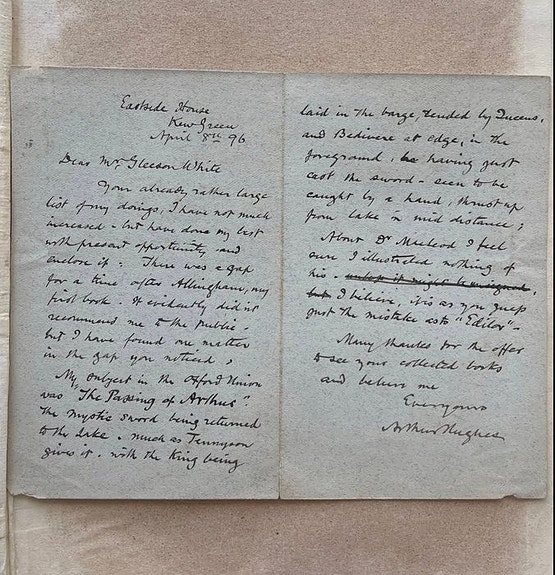 Eastside House
Kew Green
April 8th 96
Dear Mr Gleeson White
Your already rather large
list of my doings, I have not much
increased - but have done my best
with present opportunity and
enclose it. There was a gap
for a time after Allingham, my
first book. It evidently didn't
recommend me to the public -
but I have found one matter
in the gap you noticed;
My subject in the Oxford Union
was "The Passing of Arthur".
The mystic sword being returned
to the Lake. much as Tennyson
gives it. with the King being
laid in the barge, tended by Queens,
and Bedivere at edge, in the
foreground, having just
cast the sword - seen to be
caught by a hand, thrust up
from lake in mid distance;
About Dr Macleod I feel
sure I illustrated nothing of
his - unless it might be unsigned,
but I believe, it is as you guess
just the mistake as to "Editor" -
Many thanks for the offer
to see your collected books
and believe me
Ever yours
Arthur Hughes